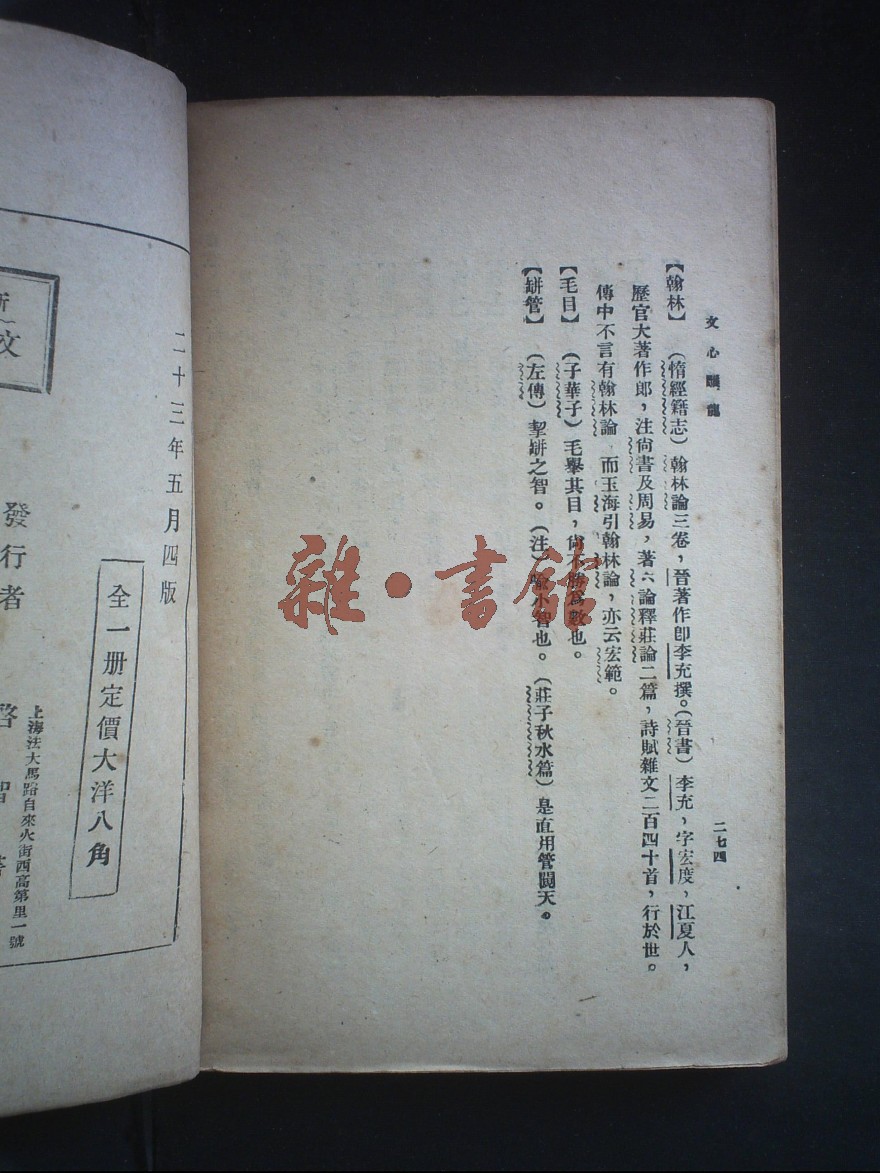 文心雕龍
二七四
【翰林】(惰經籍志)翰林論三卷,晉著作卽李充撰。(晉書)李充,字宏度,江夏人,
歷官大著作郎,注尙書及周易,著六論釋莊論二篇,詩賦雜文二百四十首,行於世。
傳中不言有翰林論 而玉海引翰林論,亦云宏範。
【毛目】(子華子)毛舉其目,尙不勝爲數也。
【缾管】(左傳)挈缾之智。(注)喻小智也。(莊子秋水篇)是直用管闚天。
雜·書館
二十三年五月四版
全一册定價大洋八角
上海法大馬路自來火街西高第里一號
發行者 啓智書
新
文